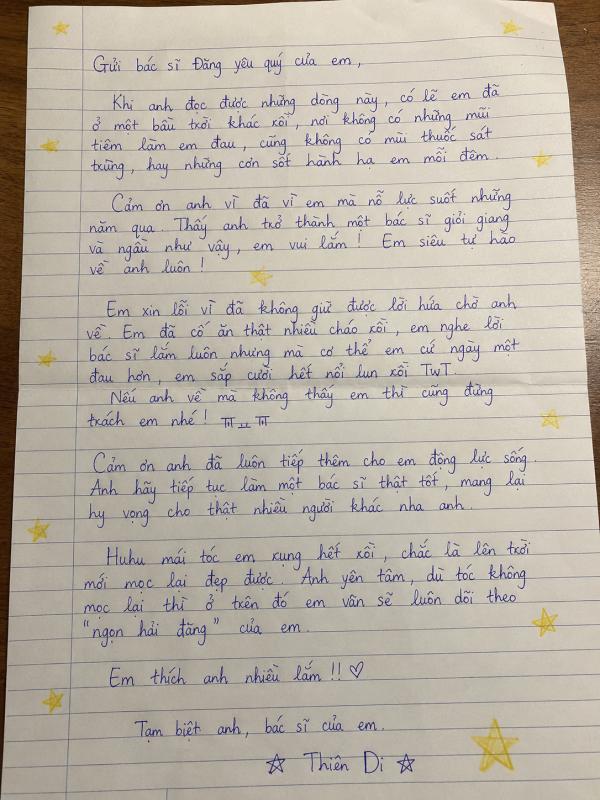 Gửi bác sĩ Đăng yêu quý của em,
Khi anh đọc được những dòng này, có lẽ em đã
ở một bầu trời khác rồi, nơi không có những mũi
tiêm làm em đau, cũng không có mùi thuốc sát
trùng, hay những cơn sốt hành hạ em mỗi đêm.
Cảm ơn anh vì đã vì em mà nỗ lực suốt những
năm qua. Thấy anh trở thành một bác sĩ giỏi giang
và ngầu như vậy, em vui lắm! Em siêu tự hào
về anh luôn!
Em xin lỗi vì đã không giữ được lời hứa chờ anh
về. Em đã cố ăn thật nhiều cháo rồi, em nghe lời
bác sĩ lắm luôn nhưng mà cơ thể em cứ ngày một
đau hơn, em sắp cười hết nổi lun rồi TwT.
Nếu anh về mà không thấy em thì cũng đừng
trách em nhé! ㅠㅛㅠ
Cảm ơn anh đã luôn tiếp thêm cho em động lực sống.
Anh hãy tiếp tục làm một bác sĩ thật tốt, mang lại
hy vọng cho thật nhiều người khác nha anh.
Huhu mái tóc em rụng hết rồi, chắc là lên trời
mới mọc lại đẹp được. Anh yên tâm, dù tóc không
mọc lại thì ở trên đó em vẫn sẽ luôn dõi theo
"ngọn hải đăng" của em.
Em thích anh nhiều lắm!! ♡
Tạm biệt anh, bác sĩ của em.
☆ Thiên Di ☆